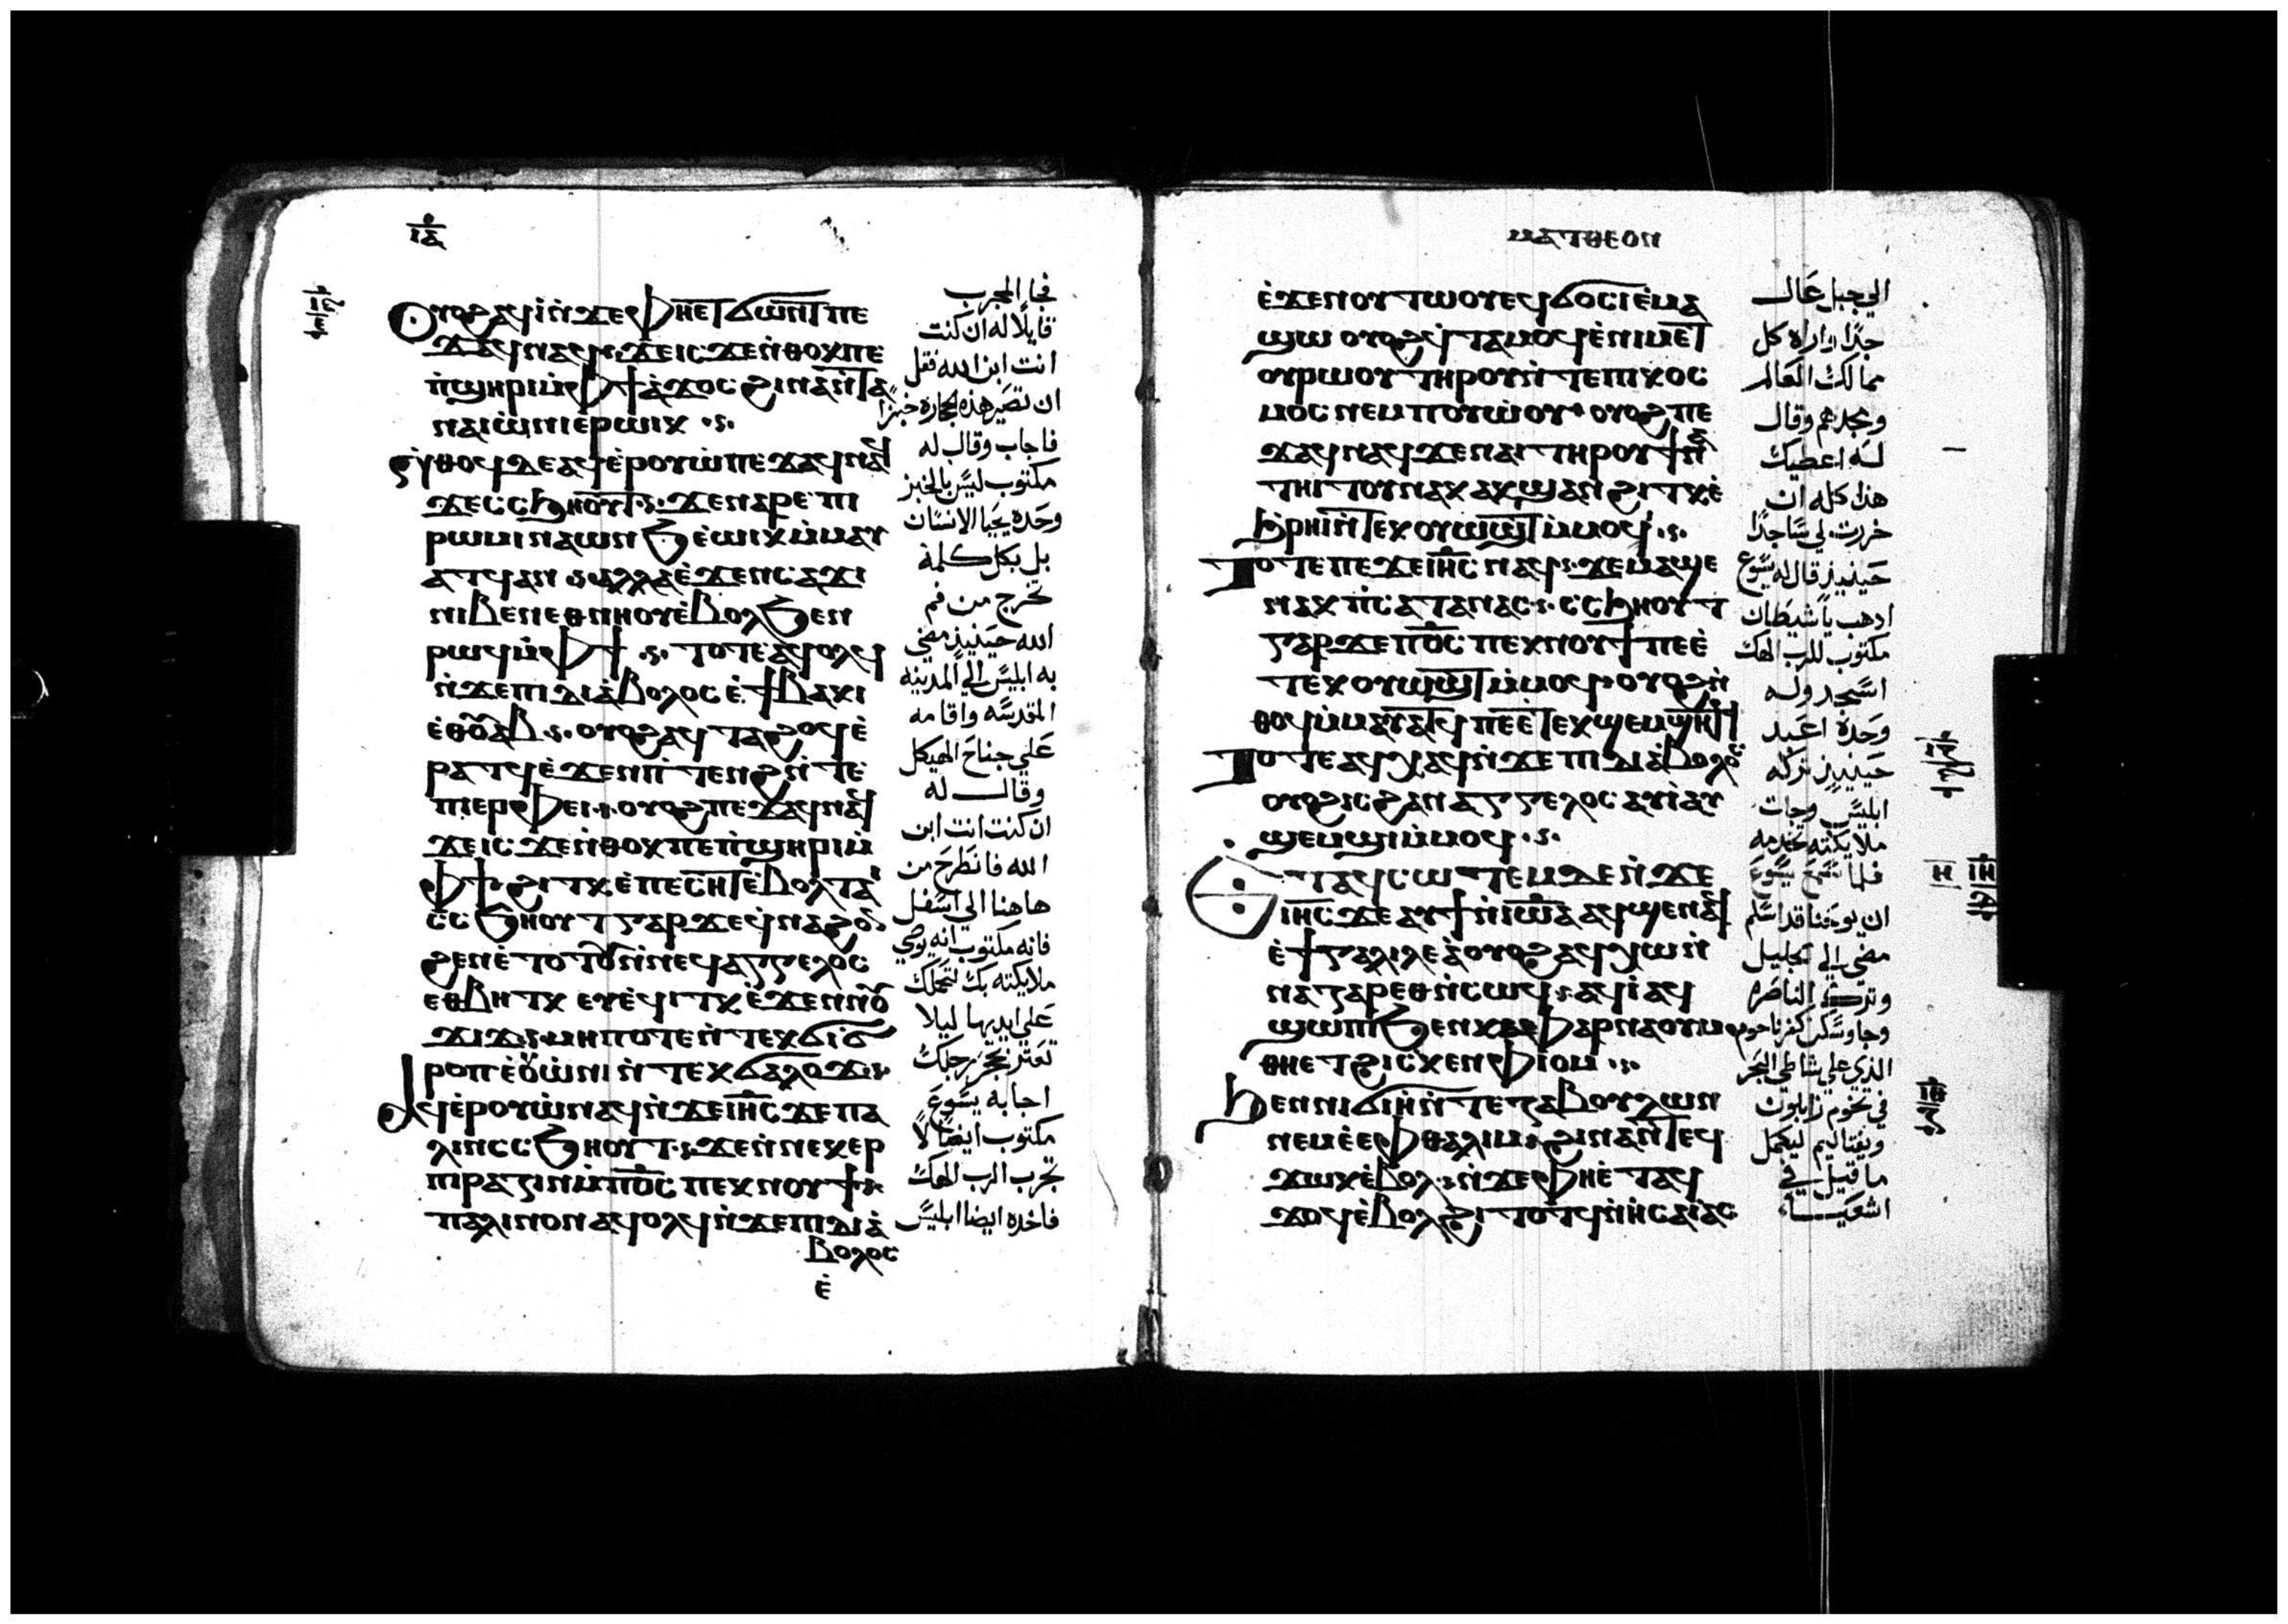 ⲓⲇ
Ⲟⲩⲟϩ ⲁϥⲓ̀ ⲛ̀ϫⲉ ⲫⲏⲉⲧϭⲱⲛⲧ ⲡⲉ
ϫⲁϥ ⲛⲁϥ ϫⲉ ⲓⲥϫⲉ ⲛ̀ⲑⲟⲕ ⲡⲉ
ⲡ̀ϣⲏⲣⲓ ⲙ̀ⲫϯ ⲁ̀ϫⲟⲥ ϩⲓⲛⲁ ⲛ̀ⲧⲉ
ⲛⲁⲓⲱ̀ⲛⲓ ⲉⲣⲱⲓⲕ
ⲛ̀ⲑⲟϥ ⲇⲉ ⲁϥⲉ̀ⲣⲟⲩⲱ̀ ⲡⲉϫⲁϥ ⲛⲁϥ
ϫⲉ ⲥⲥϧⲏⲟⲩⲧ ϫⲉ ⲛⲁⲣⲉ ⲡⲓ
ⲣⲱⲙⲓ ⲛⲁⲱⲛϧ ⲉ̀ⲱⲓⲕ ⲙ̀ⲙⲁⲩ
ⲁⲧϥ ⲁⲛ ⲁⲗⲗⲁ ⲉ̀ϫⲉⲛ ⲥⲁϫⲓ
ⲛⲓⲃⲉⲛ ⲉⲑⲛⲏⲟⲩ ⲉ̀ⲃⲟⲗϧⲉⲛ
ⲣⲱϥ ⲙ̀ⲫϯ ⲧⲟⲧⲉ ⲁϥⲟⲗϥ
ⲛ̀ϫⲉ ⲡⲓⲇⲓⲁ̀ⲃⲟⲗⲟⲥ ⲉ̀ϯⲃⲁⲕⲓ
ⲉ̀ⲑⲟⲩⲁⲃ ⲟⲩⲟϩ ⲁϥⲧⲁϩⲟϥ ⲉ̀
ⲣⲁⲧϥ ⲉ̀ϫⲉⲛ ⲡ̀ⲧⲉⲛϩ ⲛ̀ⲧⲉ
ⲡⲓⲉⲣⲫⲉⲓ ⲟⲩⲟϩ ⲡⲉϫⲁϥ ⲛⲁϥ
ϫⲉ ⲓⲥϫⲉ ⲛ̀ⲑⲟⲕ ⲡⲉ ⲡ̀ϣⲏⲣⲓ ⲙ̀
ⲫϯ ϩⲓⲧⲕ ⲉ̀ⲡⲉⲥⲏⲧ ⲉ̀ⲃⲟⲗ ⲧⲁⲓ
ⲥⲥϧⲏⲟⲩⲧ ⲅⲁⲣ ϫⲉ ϥⲛⲁϩⲟⲛ
ϩⲉⲛ ⲉ̀ⲧⲟⲧⲟⲩ ⲛ̀ⲛⲉϥⲁⲅⲅⲉⲗⲟⲥ
ⲉⲑⲃⲏⲧⲕ ⲉⲩⲉ̀ϥⲓⲧⲕ ⲉ̀ϫⲉⲛ ⲛⲟⲩ
ϫⲓϫ ⲙⲏⲡⲟⲧⲉ ⲛ̀ⲧⲉⲕϭⲓϭ
ⲣⲟⲡ ⲉ̀ⲟⲩⲱ̀ⲛⲓ ⲛ̀ⲧⲉⲕϭⲁⲗⲟϫ
Ⲁϥⲉ̀ⲣⲟⲩⲱ̀ ⲛⲁϥ ⲛ̀ϫⲉ ⲓⲏⲥ ϫⲉ ⲡⲁ
ⲗⲓⲛ ⲥⲥϧⲏⲟⲩⲧ ϫⲉ ⲛ̀ⲛⲉⲕⲉⲣ
ⲡⲓⲣⲁⲍⲓⲛ ⲙ̀ⲡϭⲟⲥ ⲡⲉⲕⲛⲟⲩϯ
ⲡⲁⲗⲓⲛ ⲟⲛ ⲁϥⲟⲗϥ ⲛ̀ϫⲉ ⲡⲓⲇⲓⲁ̀
ⲃⲟⲗⲟⲥ
ⲉ̀
فجا المجرب
قايلا له ان كنت
انت ابن الله فقل
ان تصير هذه الحجارة خبزا
فاجاب وقال له
مكتوب ليس بالخبز
وحده يحيا الانسان
بل بكل كلمة
تخرج من فم
الله حينيذ مضي
به ابليس الي المدينه
المقدسه واقامه
علي جناح الهيكل
وقال له
ان كنت انت ابن
الله فانطرح من
هاهنا الي اسفل
فانه مكتوب انه يوصي
ملايكته بك لتحملك
علي ايديها ليلا
تعثر بحجر رجلك
اجابه يسوع
مكتوب ايضا لا
تجرب الرب الهك
فاخده ايضا ابليس
ⲙⲁⲧⲑⲉⲟⲛ
ⲉ̀ϫⲉⲛ ⲟⲩⲧⲱⲟⲩ ⲉϥϭⲟⲥⲓ ⲉ̀ⲙⲁ
ϣⲱ ⲟⲩⲟϩ ⲁϥⲧⲁⲙⲟϥ ⲉ̀ⲛⲓⲙⲉⲧ
ⲟⲩⲣⲱⲟⲩ ⲧⲏⲣⲟⲩ ⲛ̀ⲧⲉ ⲡⲓⲕⲟⲥ
ⲙⲟⲥ ⲛⲉⲙ ⲡⲟⲩⲱ̀ⲟⲩ ⲟⲩⲟϩ ⲡⲉ
ϫⲁϥ ⲛⲁϥ ϫⲉ ⲛⲁⲓ ⲧⲏⲣⲟⲩ ϯⲛⲁ
ⲧⲏⲓⲧⲟⲩ ⲛⲁⲕ ⲁⲕϣⲁⲛϩⲓⲧⲕ ⲉ̀
ϧⲣⲏⲓ ⲛ̀ⲧⲉⲕⲟⲩⲱϣⲧ ⲙ̀ⲙⲟϥ
Ⲧⲟⲧⲉ ⲡⲉϫⲉ ⲓⲏⲥ ⲛⲁϥ ϫⲉ ⲙⲁϣⲉ
ⲛⲁⲕ ⲡ̀ⲥⲁⲧⲁⲛⲁⲥ ⲥⲥϧⲏⲟⲩⲧ
ⲅⲁⲣ ϫⲉ ⲡϭⲟⲥ ⲡⲉⲕⲛⲟⲩϯ ⲡⲉ ⲉ̀
ⲧⲉⲕⲟⲩⲱϣⲧ ⲙ̀ⲙⲟϥ ⲟⲩⲟϩ ⲛ̀
ⲑⲟϥ ⲙ̀ⲙⲁⲩⲁⲧϥ ⲡⲉ ⲉⲧⲉⲕϣⲉⲙϣⲏⲧϥ
Ⲧⲟⲧⲉ ⲁϥⲭⲁϥ ⲛ̀ϫⲉ ⲡⲓⲇⲓⲁ̀ⲃⲟⲗⲟⲥ
ⲟⲩⲟϩ ⲓⲥ ϩⲁⲛⲁⲅⲅⲉⲗⲟⲥ ⲁⲩⲓ̀ ⲁⲩ
ϣⲉⲙϣⲓ ⲙ̀ⲙⲟϥ
Ⲉⲧⲁϥⲥⲱⲧⲉⲙ ⲇⲉ ⲛ̀ϫⲉ
ⲓⲏⲥ ϫⲉ ⲁⲩϯ ⲛ̀ⲓⲱⲁ ⲁϥϣⲉ ⲛⲁϥ
ⲉ̀ϯⲅⲁⲗⲓⲗⲉⲁ̀ ⲟⲩⲟϩ ⲁϥⲭⲱ ⲛ̀
ⲛⲁⲍⲁⲣⲉⲑ ⲛ̀ⲥⲱϥ ⲁϥⲓ̀ ⲁϥ
ϣⲱⲡⲓ ϧⲉⲛ ⲕⲁⲫⲁⲣⲛⲁⲟⲩⲙ
ⲑⲏⲉⲧϩⲓⲥⲕⲉⲛ ⲫⲓⲟⲙ
Ϧⲉⲛ ⲛⲓϭⲓⲏ̀ ⲛ̀ⲧⲉ ⲍⲁⲃⲟⲩⲗⲱⲛ
ⲛⲉⲙ ⲉ̀ⲉⲫⲑⲁⲗⲓⲙ ϩⲓⲛⲁ ⲛ̀ⲧⲉϥ
ϫⲱⲕ ⲉ̀ⲃⲟⲗ ⲛ̀ϫⲉ ⲫⲏⲉ̀ⲧⲁϥ
ϫⲟϥ ⲉ̀ⲃⲟⲗϩⲓⲧⲟⲧϥ ⲛ̀ⲏⲥⲁⲓⲁⲥ
الي جبل عال
جدا واراه كل
ممالك العالم
ومجدهم وقال
له اعطيك
هذا كله ان
خررت لي ساجدا
حينيذ قال له يسوع
ادهب يا شيطان
مكتوب للرب الهك
اسجد وله
وحده اعبد
حينيذ تركه
ابليس وجات
ملايكته تخدمه
فلما سمع يسوع
ان يوحنا قد اسلم
مضي الي الجليل
وترك الناصره
وجا وسكن كفرناحوم
الذي علي شاطي البحر
في تخوم زابلون
ونفتاليم ليكمل
ما قيل في
اشعيا